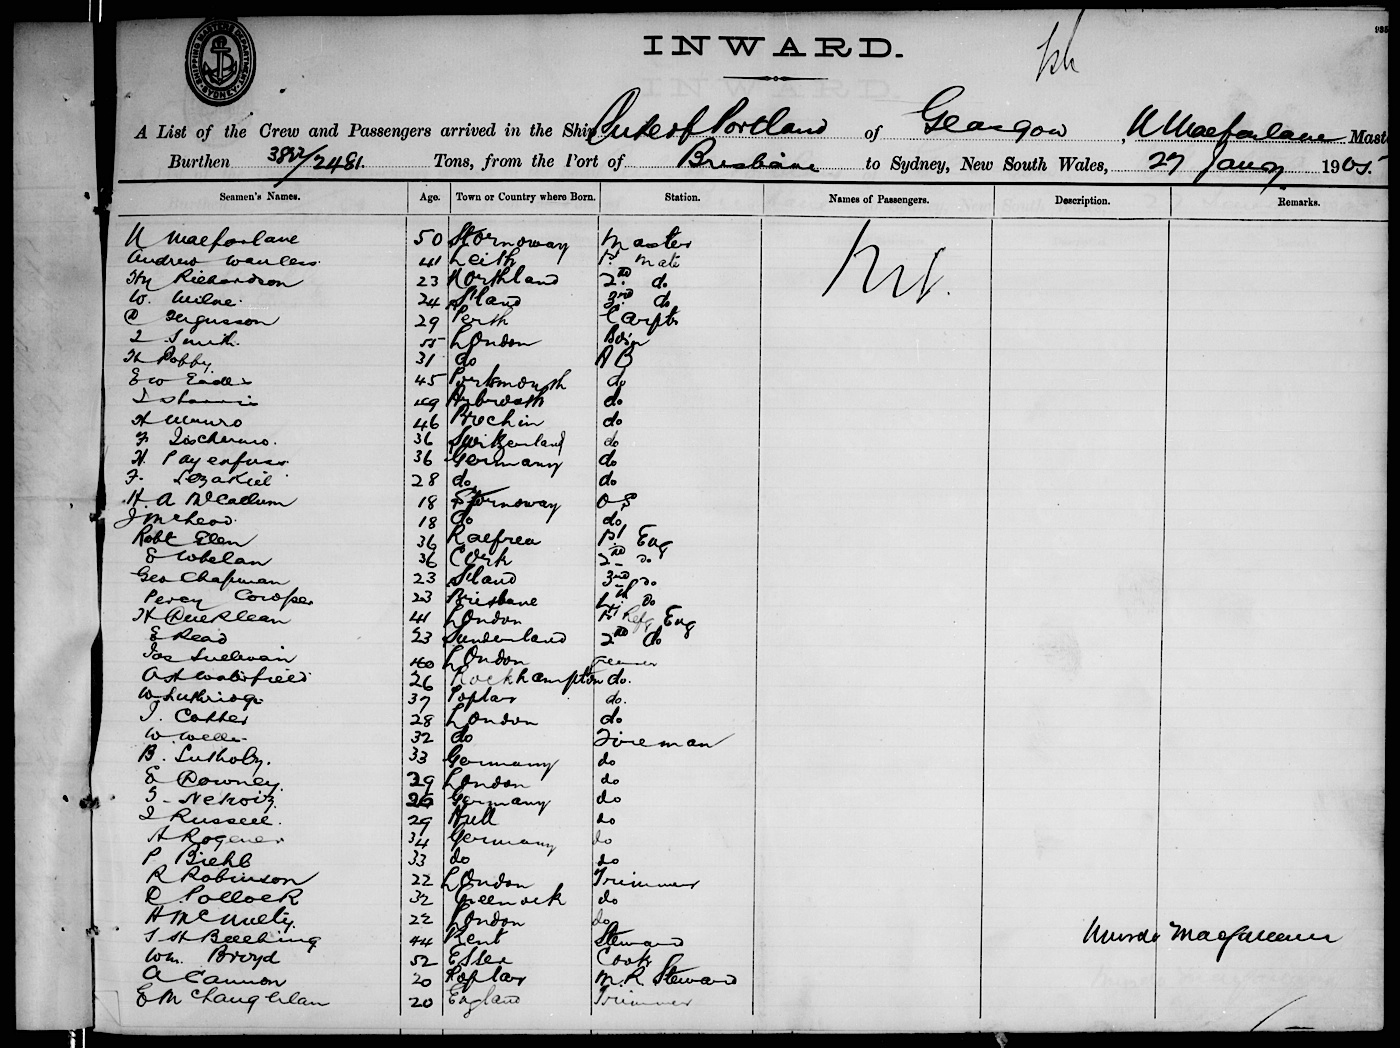 SHIPPING MASTERS DEPARTMENT SYDNEY
INWARD.
A List of the Crew and Passengers arrived in the Ship Duke of Portland of Glasgow, M Macfarlane Mast
Burthen 2481 Tons, from the Port of Brisbane to Sydney, New South Wales, 27 Jany 1905.
Seamen's Names. Age. Town or Country where Born. Station. Names of Passengers. Description. Remarks.
M Macfarlane 50 Stornoway Master Nil.
Andrew Wanless 41 Leith 1st Mate
Hy Richardson 23 Northland 2nd do
W. Milne 24 S'land 3rd do
D Fergusson 29 Perth Carptr
Smith 55 London Bosn
H Pobby 31 do A B
E W Eades 45 Portsmouth do
49 Arbroath do
H Munro 46 Brechin do
F 36 Switzerland do
H. Payenfuss 36 Germany do
F. 28 do do
H. A McCallum 18 Stornoway O S
J McLeod 18 do do
Robt Glen 36 1st Eng
E Whelan 36 Cork 2nd do
Geo Chapman 23 S'land 3rd do
Percy Cowper 23 Brisbane 4th do
H 41 London 1st Refg Eng
E Read 23 Sunderland 2nd do
Jas Sullivan 40 London Greaser
26 Rockhampton do.
W 37 Poplar do.
J. Cotter 28 London do
W Wells 32 do Fireman
B. 33 Germany do
E Downey 29 London do
26 Germany do
J Russell 29 Hull do
A Rogener 34 Germany do
P Biehl 33 do do
R Robinson 22 London Trimmer
D Pollock 32 Greenock do
H McNulty 22 London do
J H Beeching 44 Kent Steward Murdo Macfarlane
Wm. Broyd 52 Essex Cook
A Cannon 20 Poplar M. R. Steward
E McLaughlan 20 England Trimmer